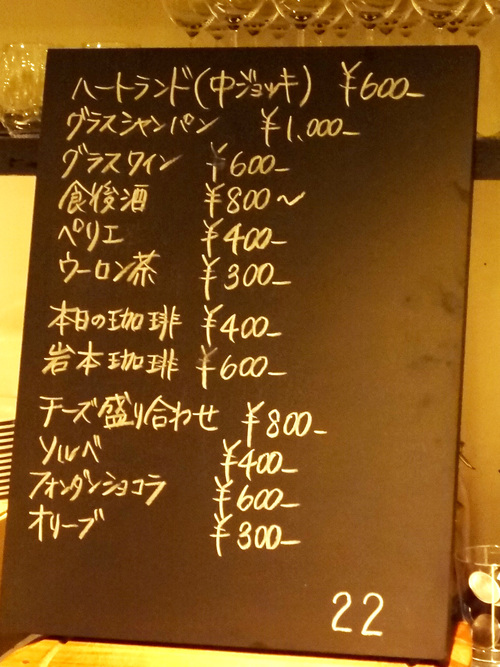 ハートランド(中ジョッキ) ¥600-
グラスシャンパン ¥1,000-
グラスワイン ¥600-
食後酒 ¥800〜
ペリエ ¥400-
ウーロン茶 ¥300-
本日の珈琲 ¥400-
岩本珈琲 ¥600-
チーズ盛り合わせ ¥800-
ソルベ ¥400-
フォンダンショコラ ¥600-
オリーブ ¥300-
22